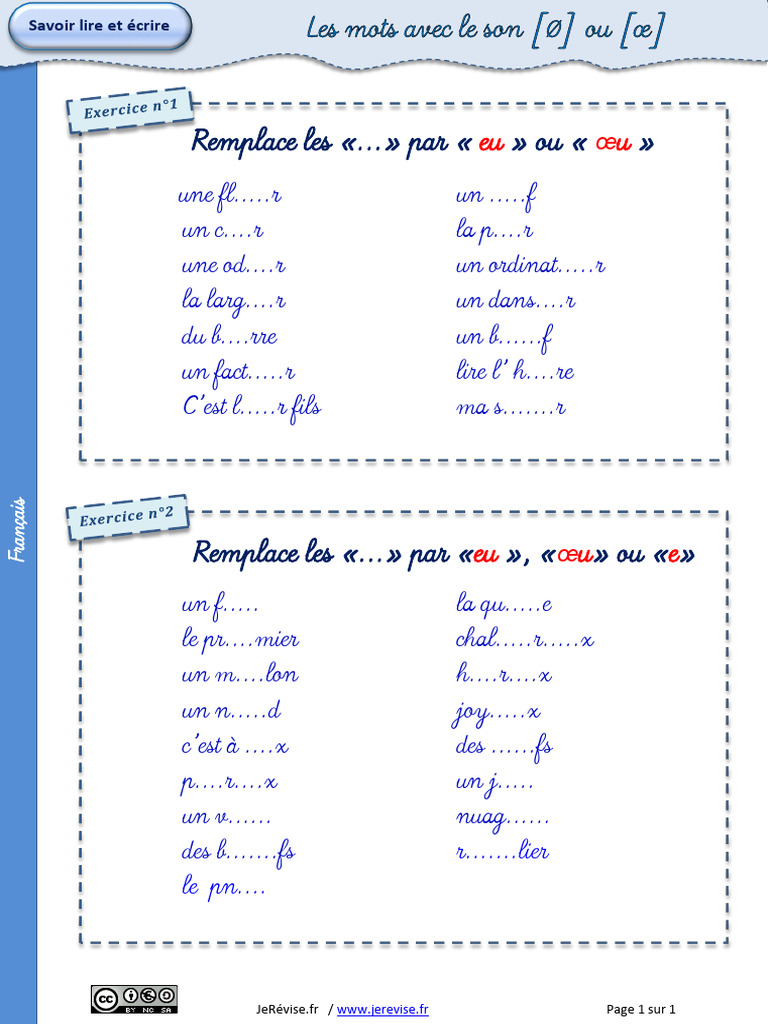 Savoir lire et écrire
Les mots avec le son [Ø] ou [œ]
Exercice n°1
Remplace les «...» par « eu » ou « œu »
une fl.....r
un c....r
une od....r
la larg....r
du b....rre
un fact.....r
C'est l.....r fils
un .....f
la p....r
un ordinat.....r
un dans....r
un b......f
lire l' h....re
ma s.......r
Français
Exercice n°2
Remplace les «...» par «eu », «œu» ou «e»
un f.....
le pr....mier
un m....lon
un n.....d
c'est à ....x
p....r....x
un v......
des b.......fs
le pn....
la qu.....e
chal.....r.....x
h....r....x
joy.....x
des ......fs
un j.....
nuag......
r.......lier
cc BY NC SA
JeRévise.fr / www.jerevise.fr
Page 1 sur 1